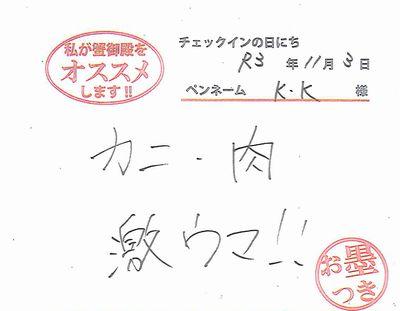 私が蟹御殿を
オススメ
します!!
チェックインの日にち
R3 年 11月 3日
ペンネーム K.K 様
カニ・肉
激ウマ!!
お墨
つき